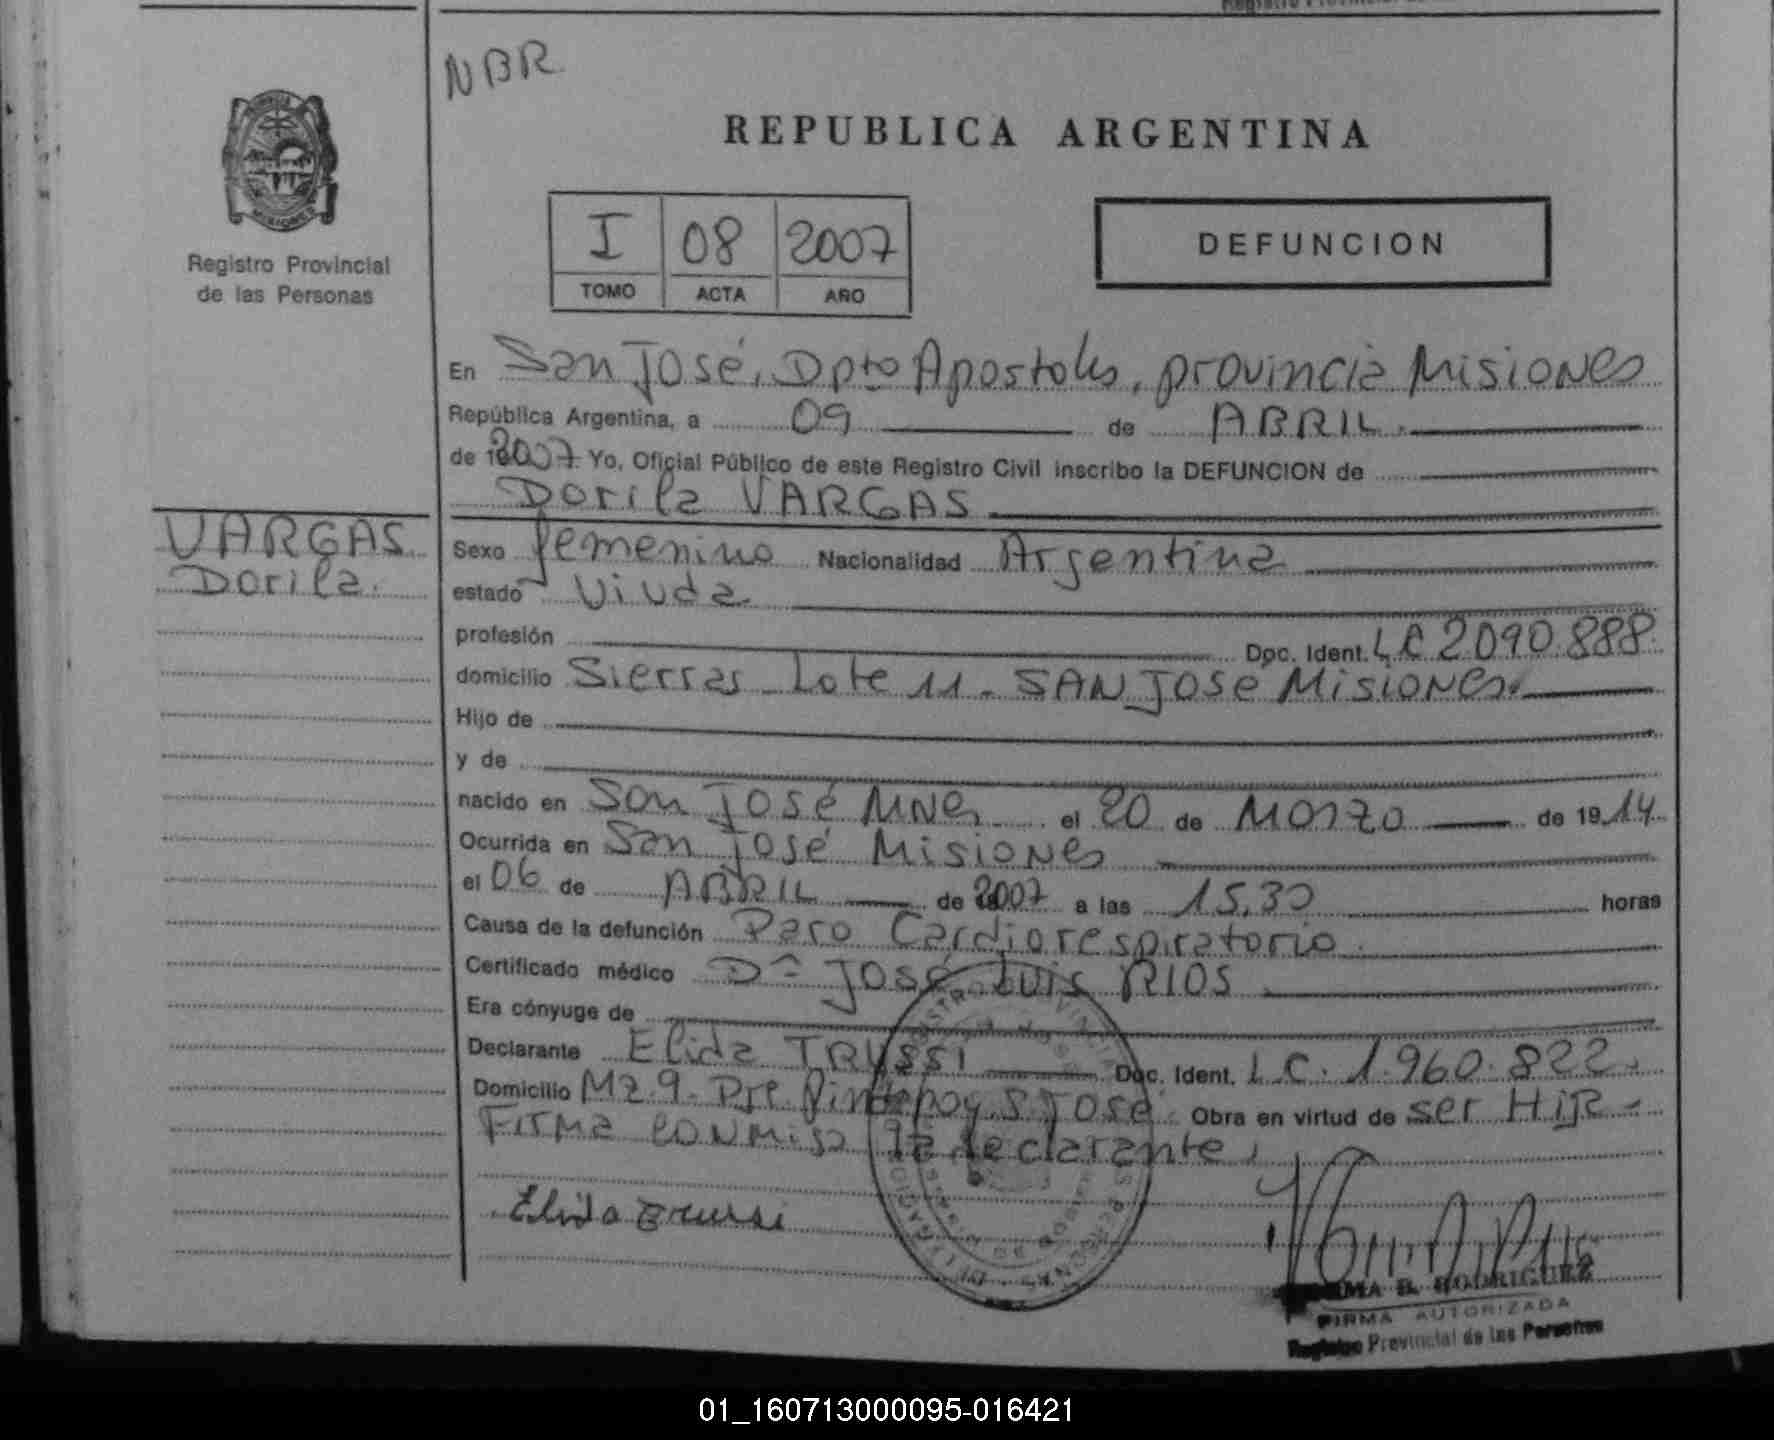 NBR
REPUBLICA ARGENTINA
MISIONES
Registro Provincial
de las Personas
I 08 2007
TOMO ACTA AÑO
DEFUNCION
En San José, Dpto Apostoles, provincia Misiones
República Argentina, a 09 de ABRIL.
de 2007 Yo, Oficial Público de este Registro Civil inscribo la DEFUNCION de
Dorila VARGAS
VARGAS
Dorila.
Sexo femenino Nacionalidad Argentina
estado Viuda
profesión Doc. Ident. L.C 2090.888.
domicilio Sierras Lote 11 - SAN JOSE Misiones.
Hijo de
y de
nacido en San José MNES el 20 de MARZO de 1914
Ocurrida en San José Misiones
el 06 de ABRIL de 2007 a las 15,30 horas
Causa de la defunción Paro Cardiorespiratorio.
Certificado médico José Luis RIOS
Era cónyuge de
Declarante Elida TRUSSI Doc. Ident. L.C. 1.960.822.
Domicilio Mz.9. Pindapoy S. José Obra en virtud de ser Hija -
Firma conmigo la declarante.
Elida
B. RODRIGUEZ
FIRMA AUTORIZADA
Registro Provincial de las Personas
01_160713000095-016421